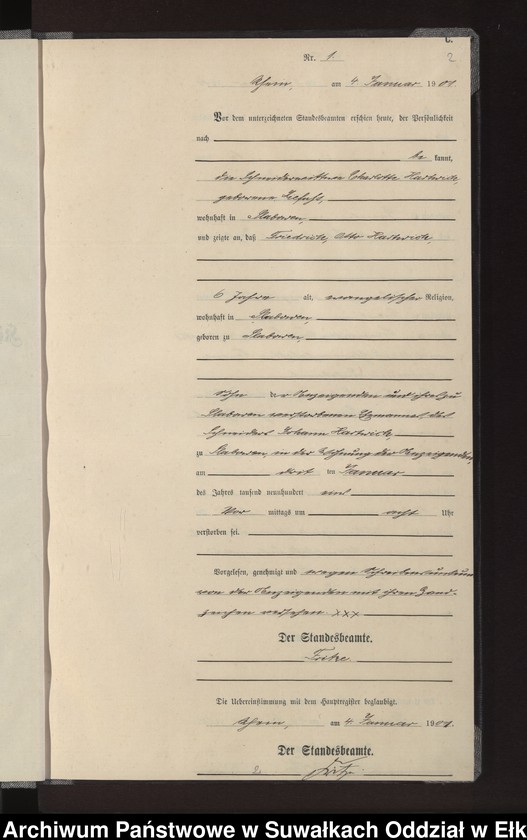 C.
2
Nr. 1
am 4 Januar 1901
Vor dem unterzeichneten Standesbeamten erschien heute, der Persönlichkeit
nach
be kannt,
die Schneiderwittwe Charlotte Hartwich,
geborene
wohnhaft in
und zeigte an, daß Friedrich, Otto Hartwich,
6 Jahre alt, evangelischer Religion,
wohnhaft in
geboren zu
Sohn der Anzeigenden und ihres zu
verstorbenen Ehemannes, des
Schneiders Johann Hartwich,
zu in der Wohnung der Anzeigenden,
am ten Januar
des Jahres tausend neunhundert eins
Vor mittags um acht Uhr
verstorben sei.
Vorgelesen, genehmigt und wegen Schreibensunkunde
von der Anzeigenden mit ihrem Hand-
zeichen versehen. XXX
Der Standesbeamte.
Die Uebereinstimmung mit dem Hauptregister beglaubigt.
am 4 Januar 1901
Der Standesbeamte.
Archiwum Państwowe w Suwałkach Oddział w Ełku